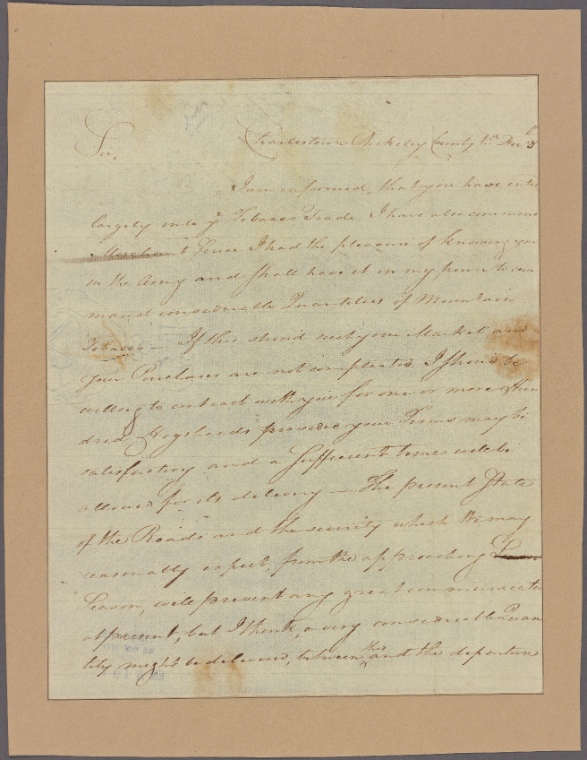 Charlestown Berkeley County Va Decr 3th
Sir,
I am informed, that you have ente
largely into ye Tobacco Trade. I have also commenc
Merchant Since I had the pleasure of knowing you
in the Army and shall have it in my power to com
mand considerable Quantities of Mountain
Tobacco — If this should suit your Market and
your Purchases are not compleated, I should be
willing to contract with you for one or more Hun
dred Hogsheads provided your Terms may be
satisfactory and a Sufficient time will be
allowed for its delivery — The present State
of the Roads and the severity which we may
reasonably expect, from the approaching
Season, will prevent any great commence
at present, but I think, a very considerable Quan
tity might be delivered, between this and the departure